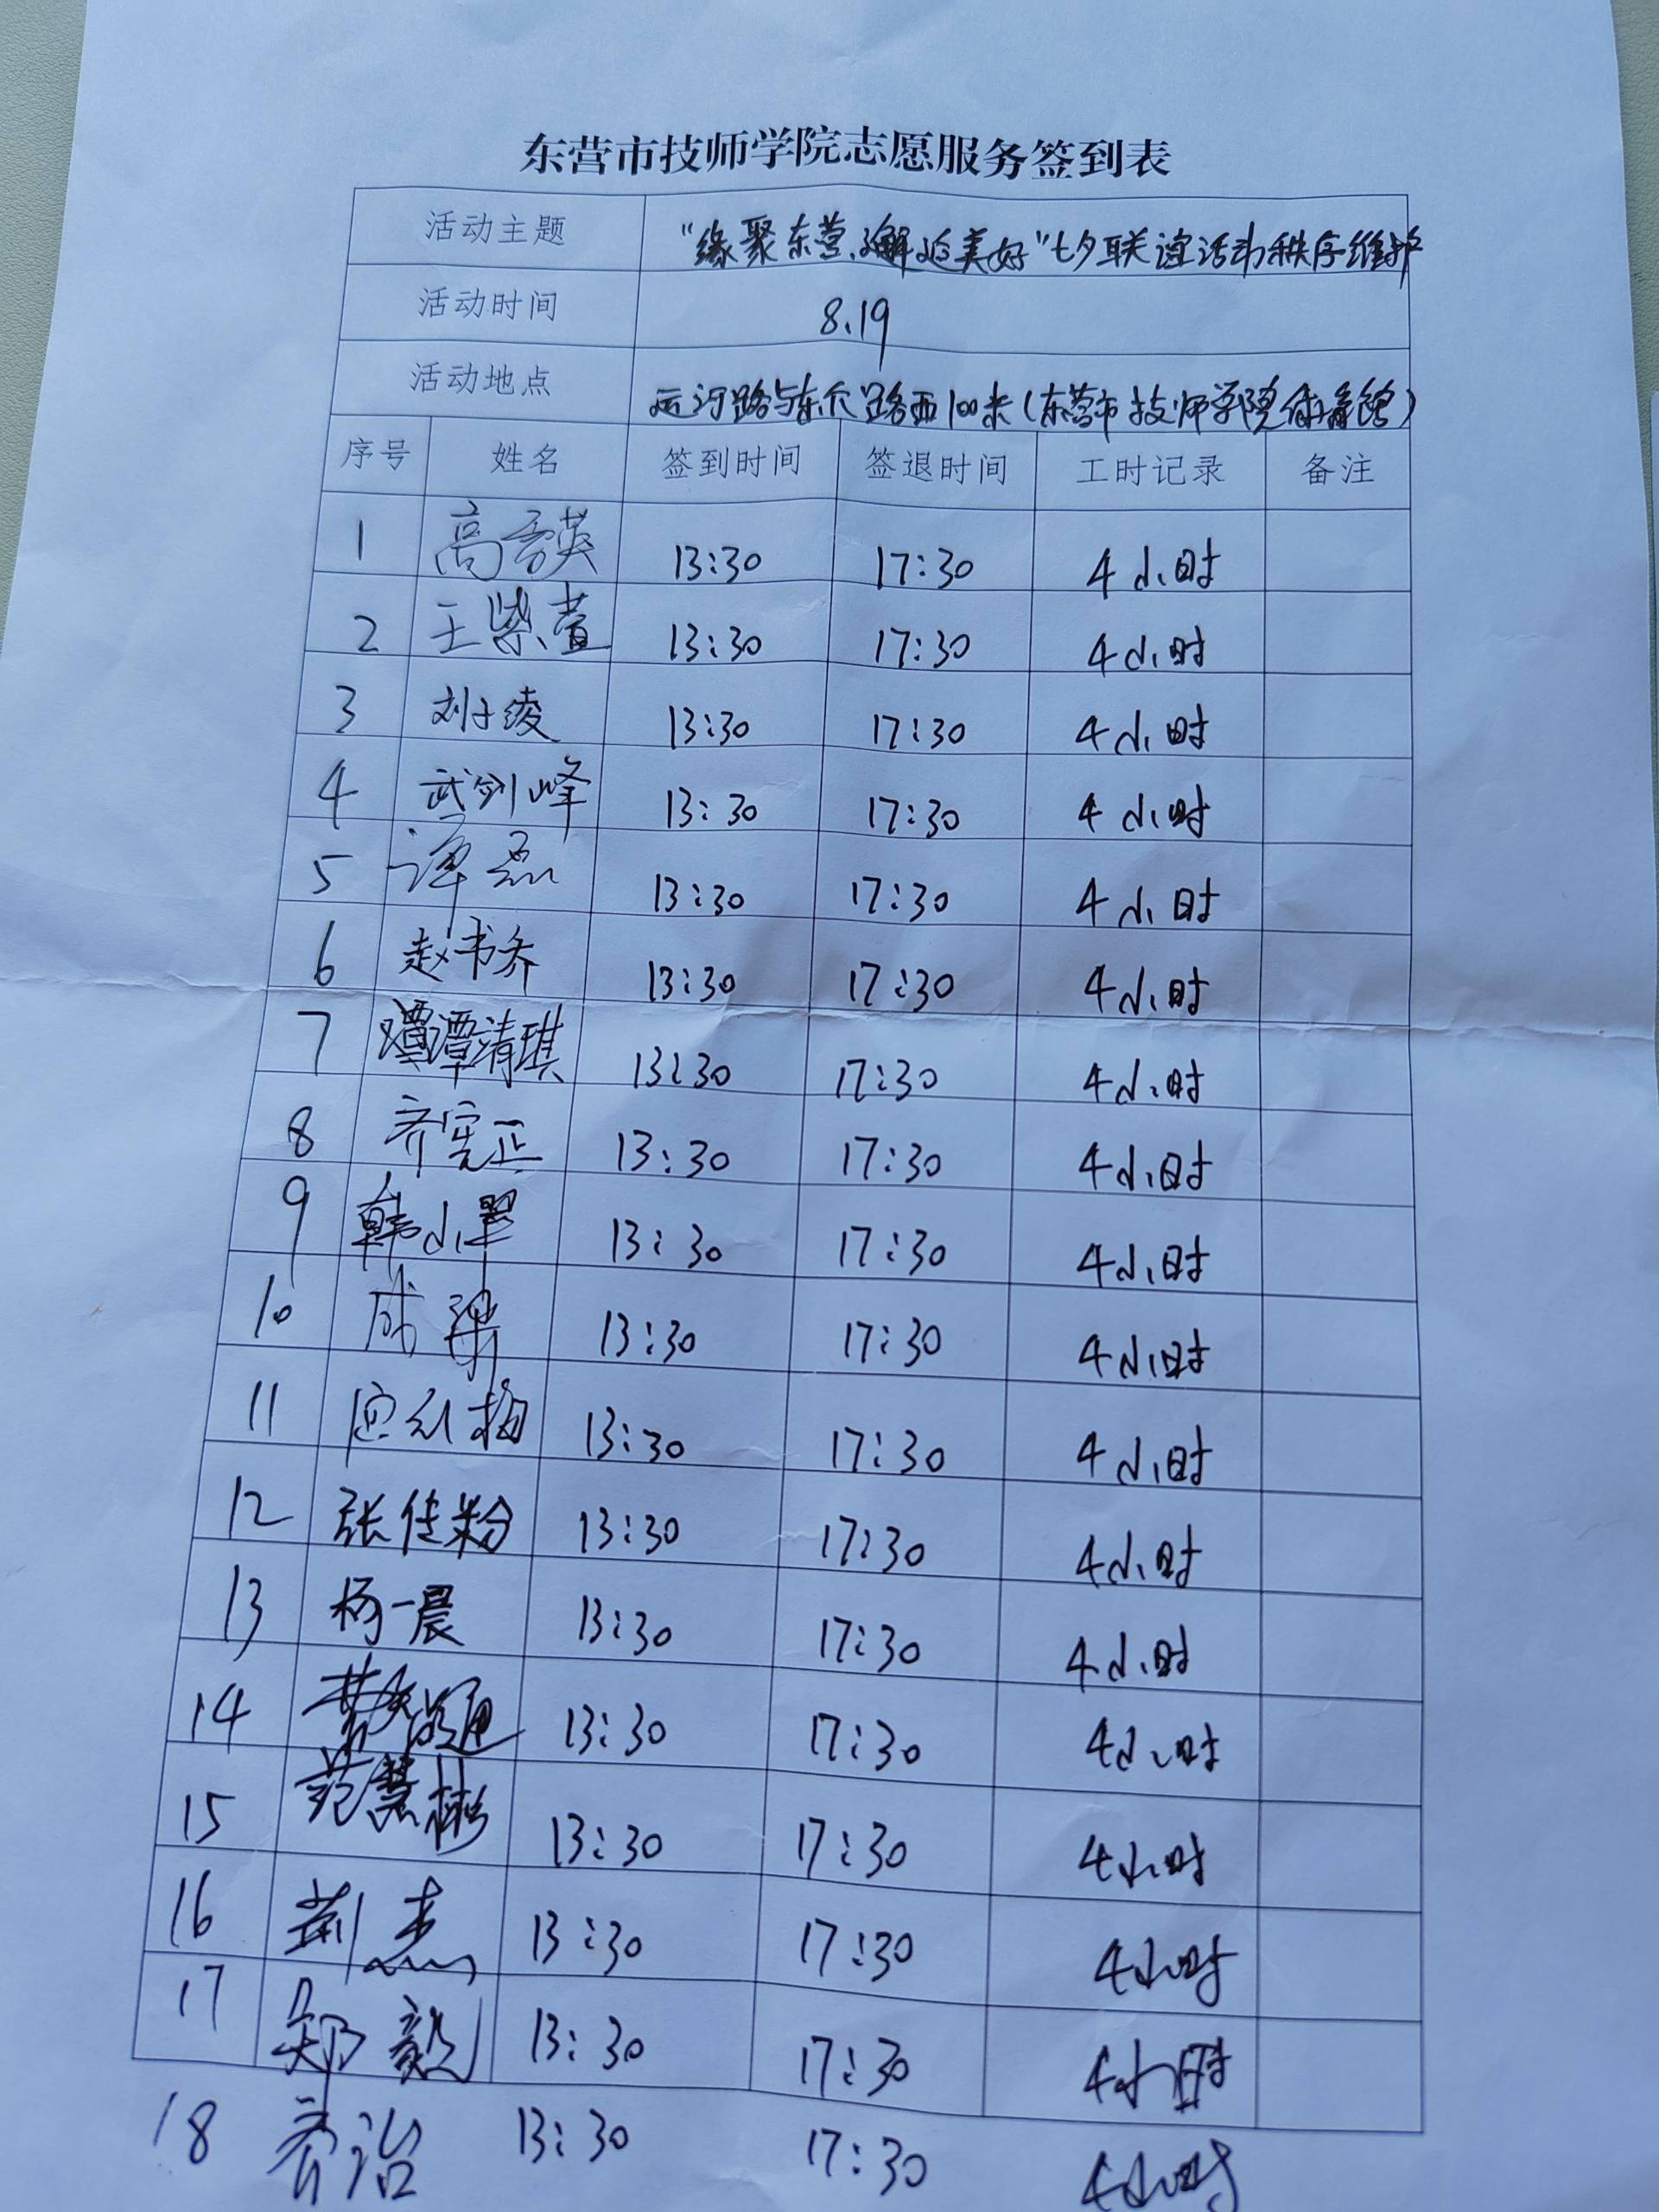 东营市技师学院志愿服务签到表
活动主题 "缘聚东营、邂逅美好"七夕联谊活动秩序维护
活动时间 8.19
活动地点 运河路与东八路西100米(东营市技师学院体育馆)
序号 姓名 签到时间 签退时间 工时记录 备注
1 高 英 13:30 17:30 4小时
2 王紫萱 13:30 17:30 4小时
3 刘子绫 13:30 17:30 4小时
4 武剑峰 13:30 17:30 4小时
5 谭磊 13:30 17:30 4小时
6 赵书乔 13:30 17:30 4小时
7 谭清琪 13:30 17:30 4小时
8 齐宪正 13:30 17:30 4小时
9 韩小翠 13:30 17:30 4小时
10 成 13:30 17:30 4小时
11 红梅 13:30 17:30 4小时
12 张佳粉 13:30 17:30 4小时
13 杨一晨 13:30 17:30 4小时
14 13:30 17:30 4小时
15 范慧彬 13:30 17:30 4小时
16 荆杰 13:30 17:30 4小时
17 郑毅 13:30 17:30 4小时
18 乔治 13:30 17:30 4小时